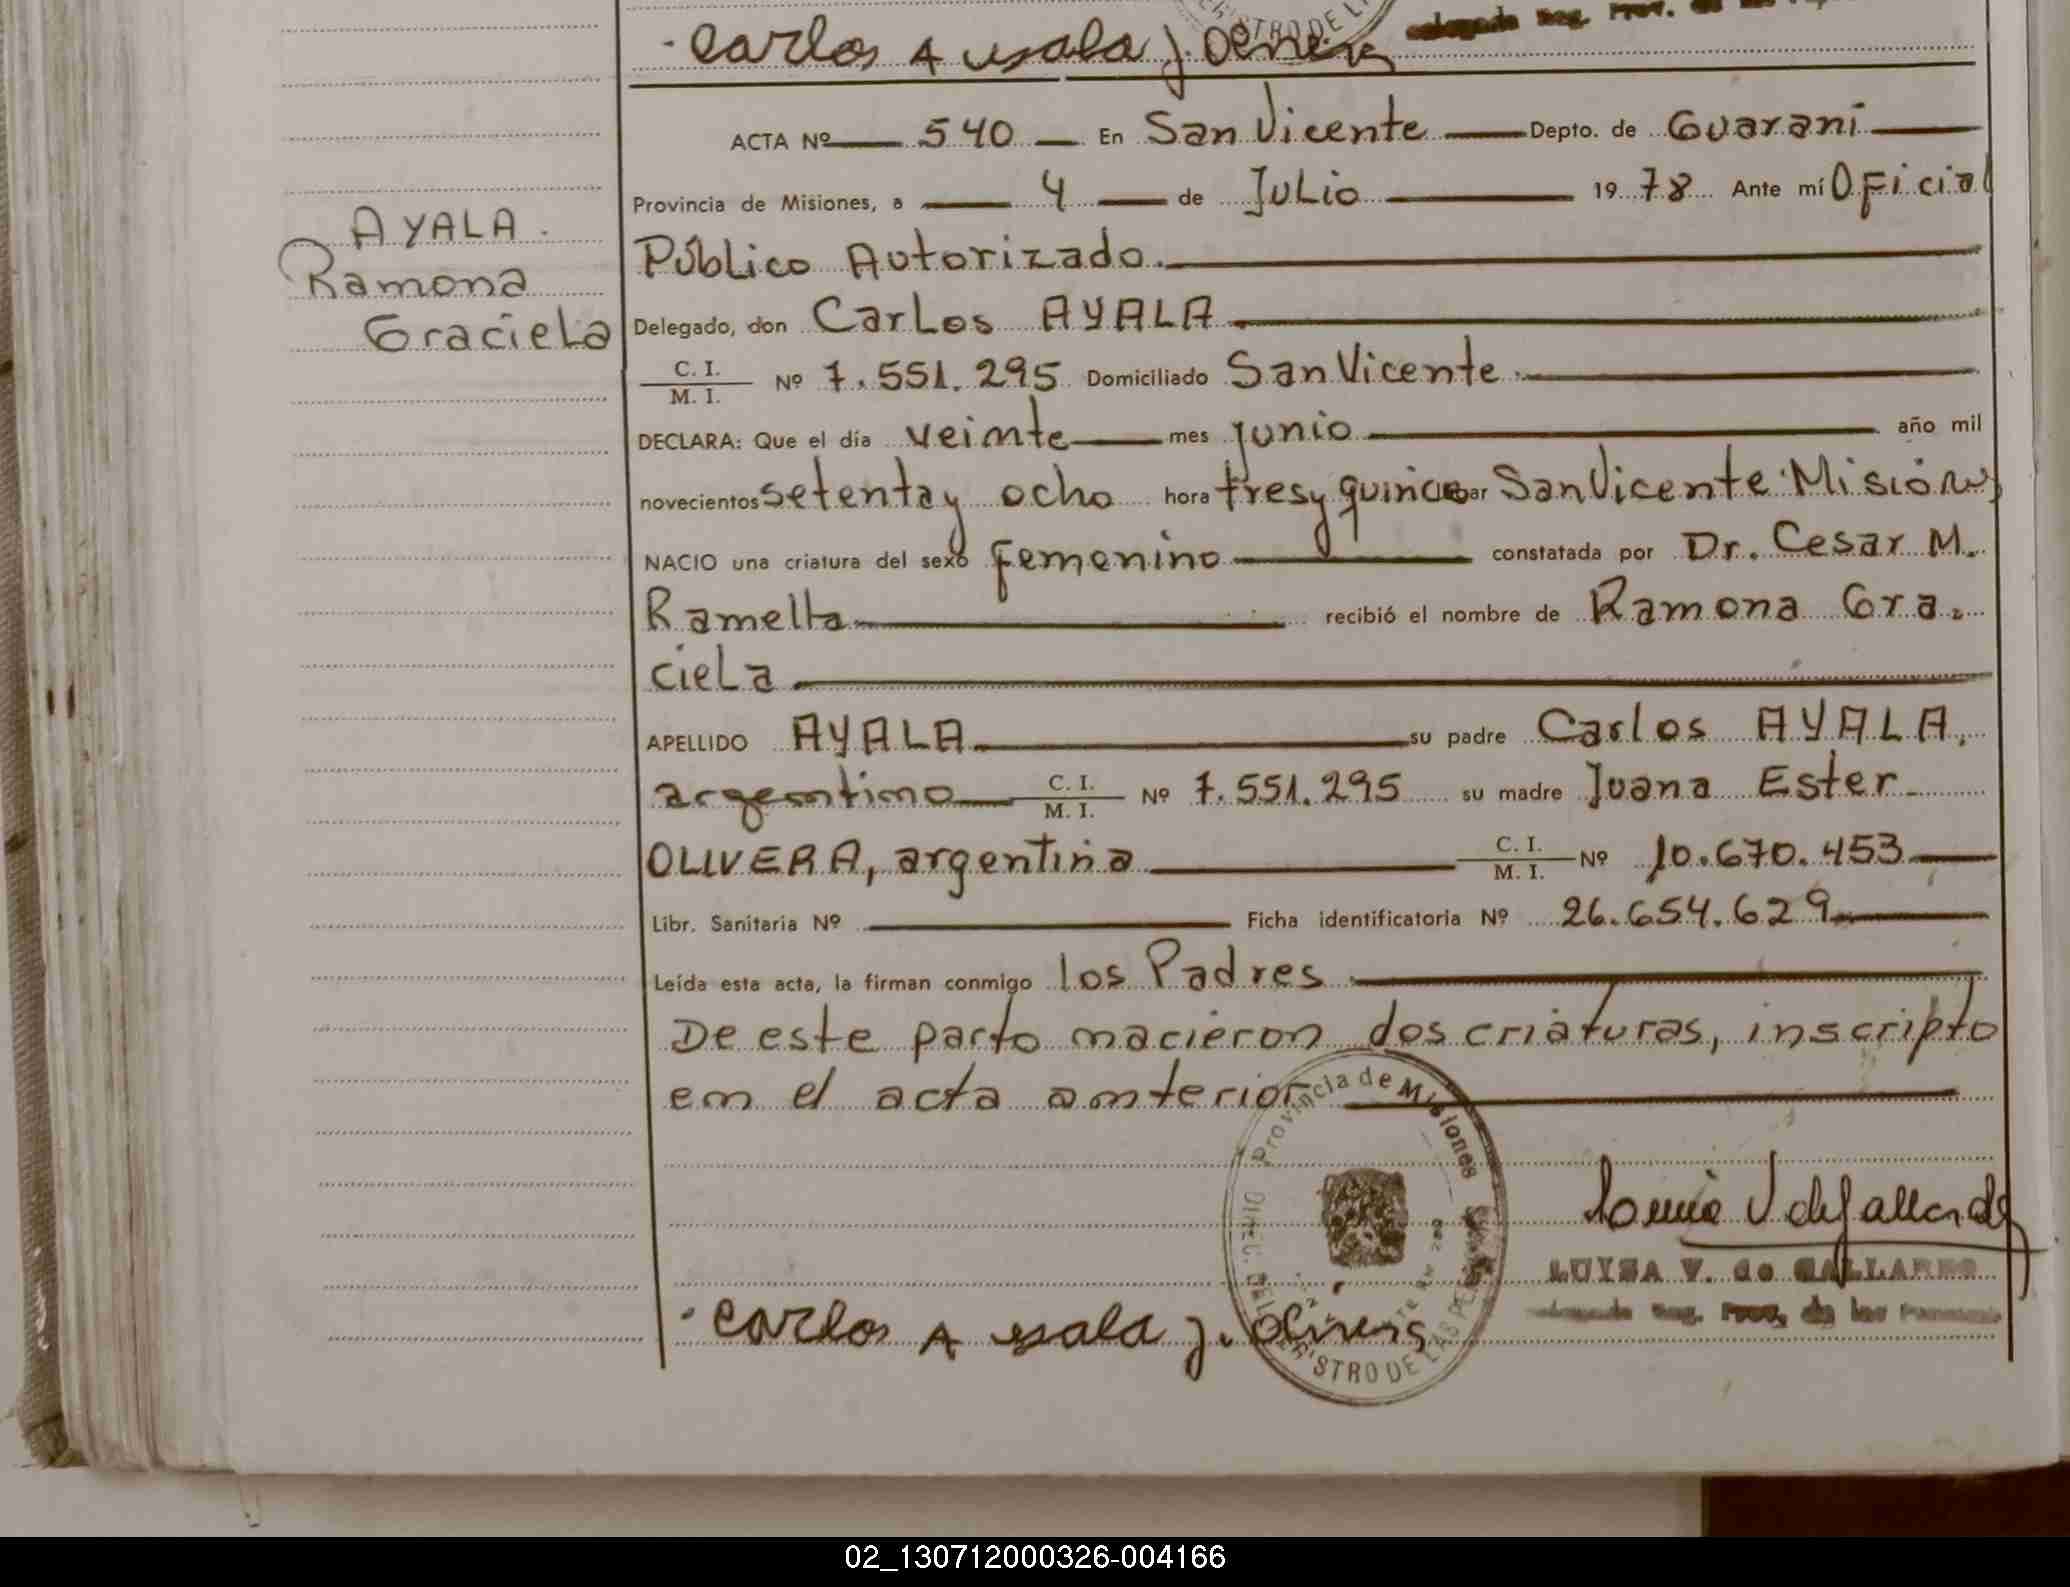 Carlos A ayala J. Olivera
ACTA Nº 540 En San Vicente Depto. de Guaraní
Provincia de Misiones, a 4 de Julio 1978 Ante mí Oficial
Público Autorizado.
AYALA.
Ramona
Graciela
Delegado, don Carlos AYALA
C. I.
M. I. Nº 7.551.295 Domiciliado San Vicente
DECLARA: Que el día veinte mes junio año mil
novecientos setenta y ocho hora tres y quince San Vicente Misiones
NACIO una criatura del sexo femenino constatada por Dr. Cesar M.
Ramella recibió el nombre de Ramona Gra-
ciela
APELLIDO AYALA su padre Carlos AYALA,
argentino C. I.
M. I. Nº 7.551.295 su madre Juana Ester
OLIVERA, argentina C. I.
M. I. Nº 10.670.453
Libr. Sanitaria Nº Ficha identificatoria Nº 26.654.629
Leída esta acta, la firman conmigo los Padres
De este parto nacieron dos criaturas, inscripto
en el acta anterior
Provincia de Misiones
DIREC. DEL REGISTRO DE LAS PERSONAS
LUISA V. de GALLARDO
Delegada Reg. Prov. de las Personas
Carlos A ayala J. Olivera
02_130712000326-004166